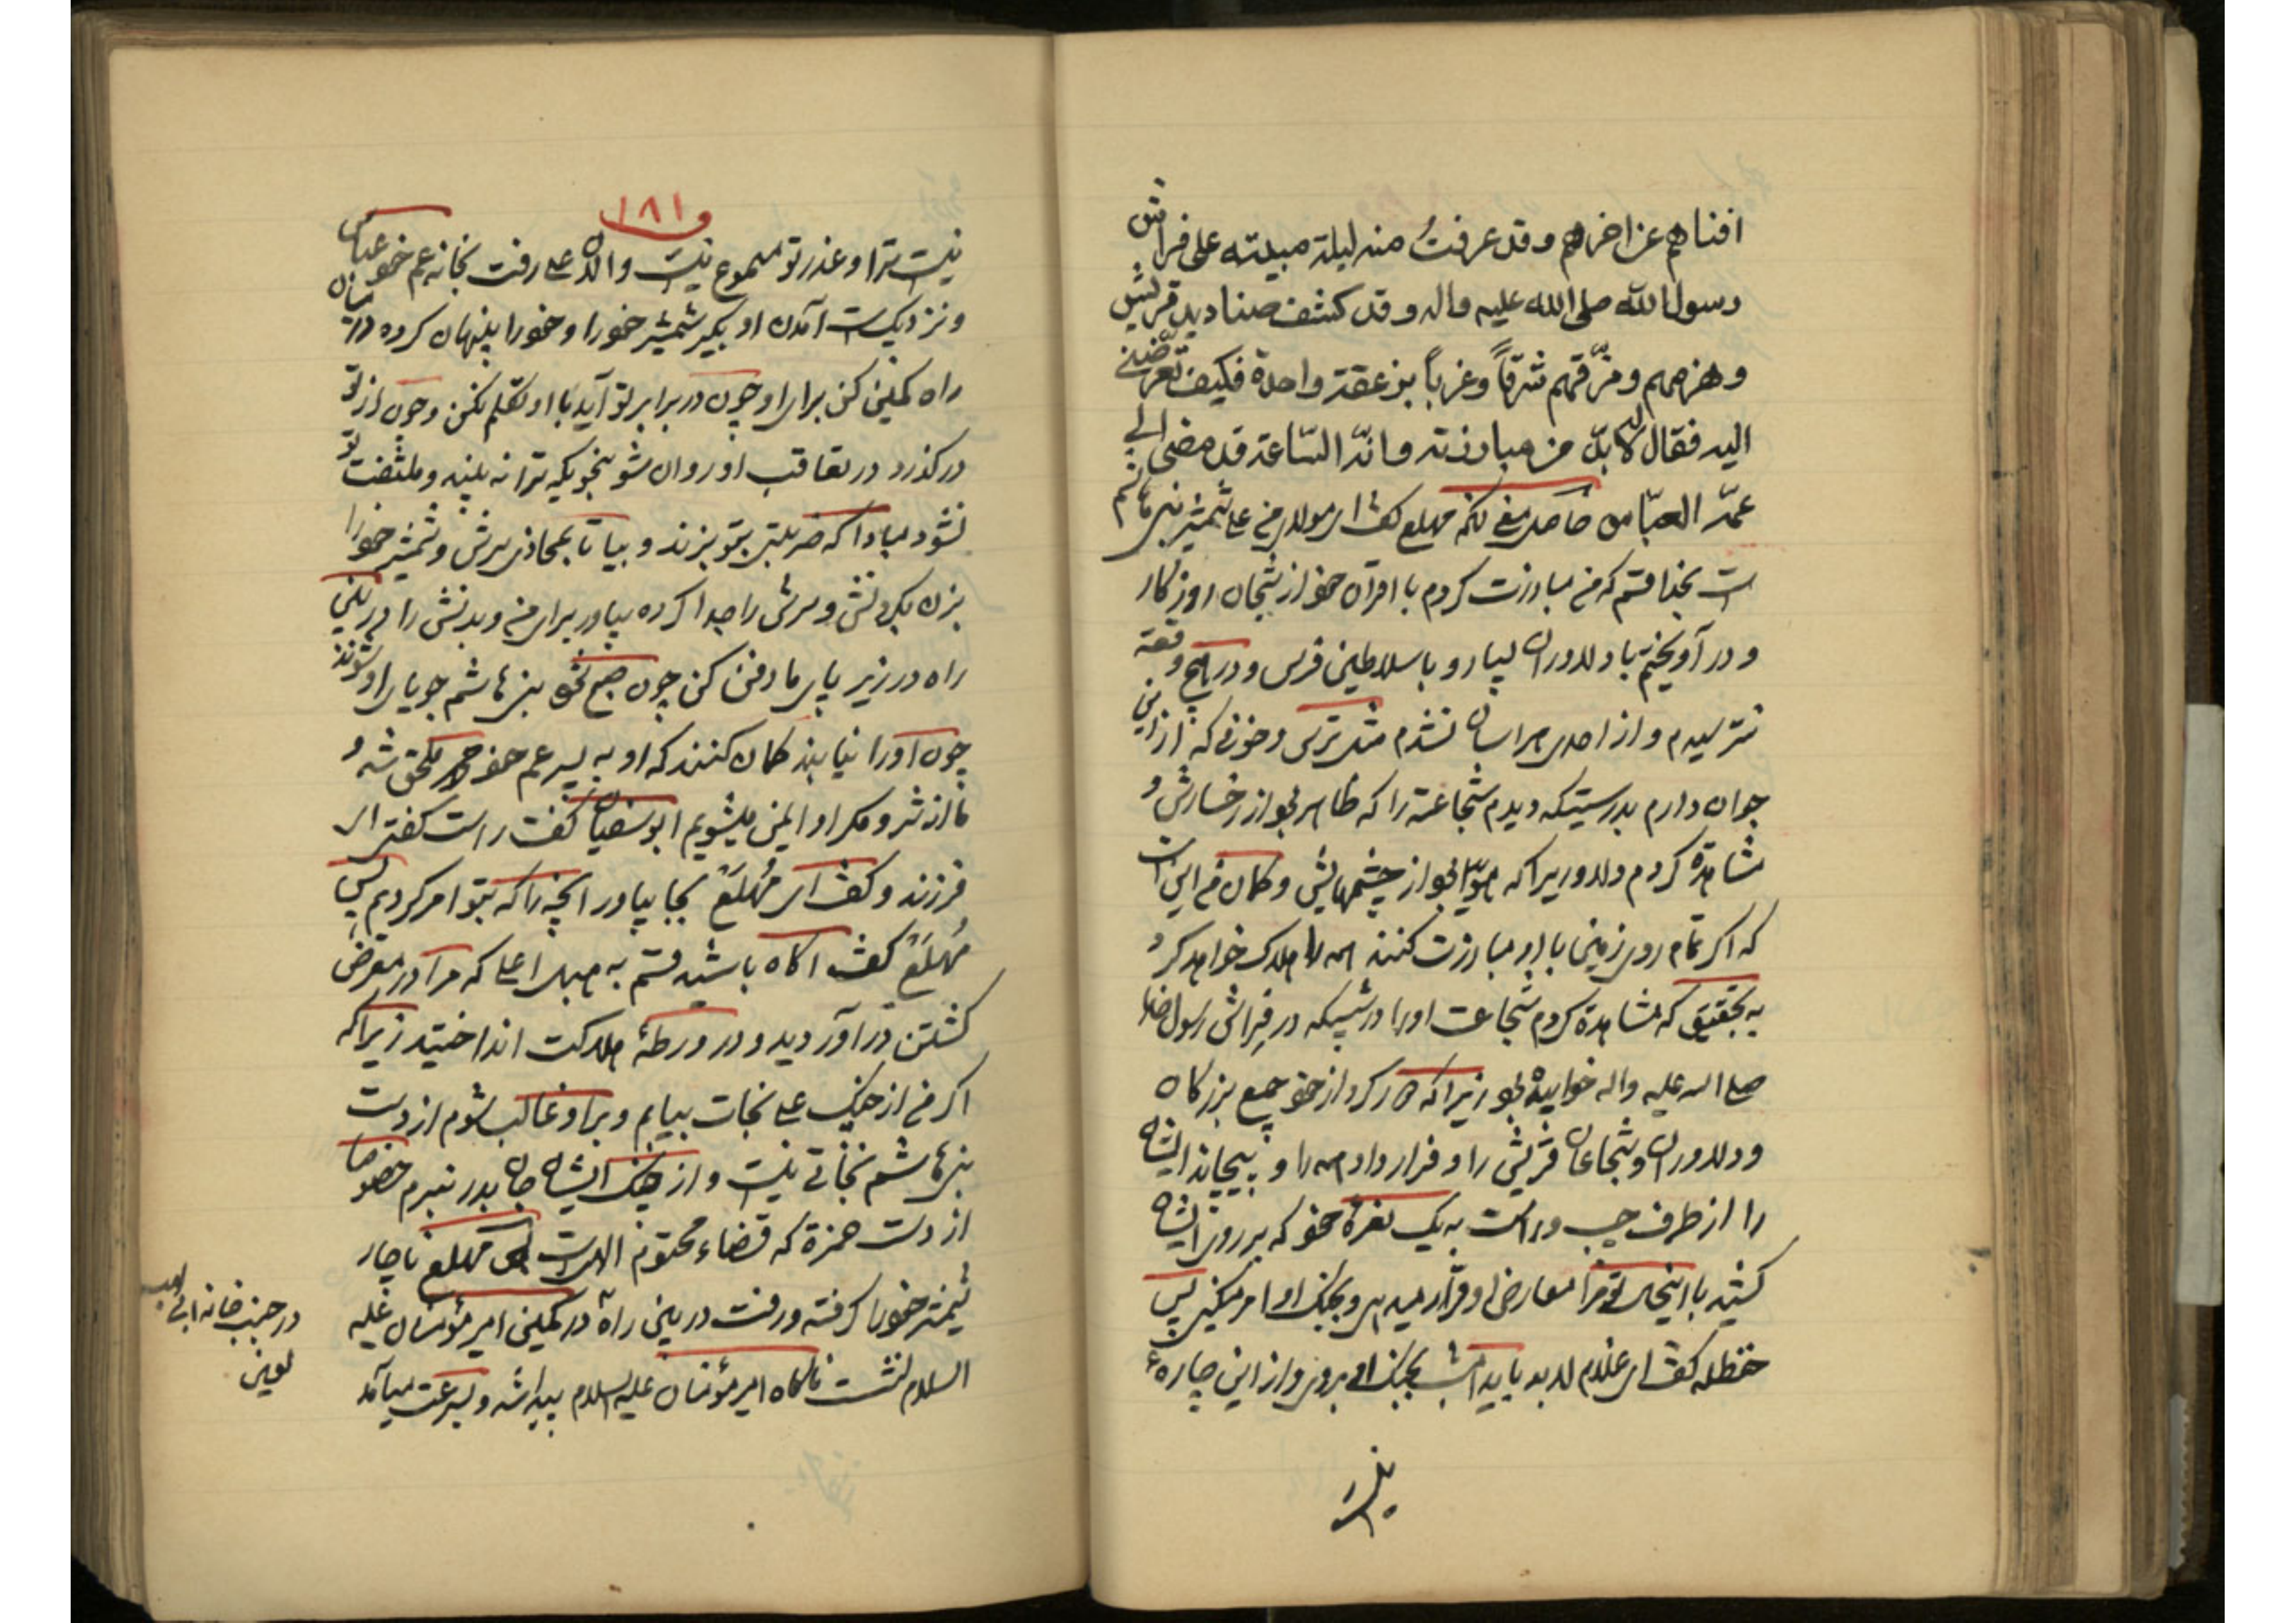 افناهم عن اخرهم و قد عرفتُ منه لیلة مبیته علی فراش
رسول الله صلی الله علیه واله و قد کشف صنادید قریش
و هزمهم و مزّقهم شرقاً و غرباً بزعقة واحدة فکیف تعرّضنی
الیه فقال لابدّ من مبارزته وانّه السّاعة قد مضی الی
عمّه العبّاس حاصل معنی آنکه مهلع گفت ای مولای من علی شمشیر بنی هاشم
است بخدا قسم که من مبارزت کردم با اقران خود از شجاعان روزگار
و درآویختم با دلاوران بسیار و با سلاطین فرس و در هیچ وقعة
نترسیدم و از احدی هراسان نشدم مثل ترس و خوفی که از این
جوان دارم بدرستیکه دیدم شجاعت را که ظاهر بود از رخسارش و
مشاهدة کردم دلاوریرا که هویدا بود از چشمهایش و گمان من این است
که اگر تمام روی زمین با او مبارزت کنند همه را هلاک خواهد کرد
به تحقیق که مشاهدة کردم شجاعت اورا در شبیکه در فِراش رسول خدا
صلی الله علیه واله خوابیدة بود زیرا که دور کرد از خود جمیع بزرگان
و دلاوران و شجاعان قریش را و فرار داد همه را و بپیچاند ایشان
را از طرف چپ و راست به یک نعرة خود که بر روی ایشان
کشید با اینحال تو مرا معارض او قرار میدهی و بجنگ او امر میکنی پس
حنظله گفت ای غلام لابد باید امشب بجنگ او بروی و از این چارهٔ
نیست
۱۸۱
نیست ترا و عذر تو مسموع نیست والآن علی رفت بخانه عم خود عباس
و نزدیک است آمدن او بگیر شمشیر خود را و خود را پنهان کرده در میان
راه کمین کن برای او چون در برابر تو آید با او تکلم نکن و چون از تو
درگذرد در تعاقب او روان شو بنحویکه ترا نه بیند و ملتفت تو
نشود مبادا که ضربتی بتو بزند و بیا تا بمحاذی سرش و شمشیر خود را
بزن بگردنش و سرش را جدا کرده بیاور برای من و بدنش را در بین
راه در زیر پای ما دفن کن چون صبح شود بنی هاشم جویای او شوند
چون او را نیابند گمان کنند که او به پسر عم خود محمد ملحق شد و
ما از شر و مکر او ایمن میشویم ابوسفیان گفت راست گفتی ای
فرزند و گفت ای مُهلَعْ بجا بیاور آنچه را که بتو امر کردیم پس
مُهلَعْ گفت آگاه باشید قسم به هبل اعلی که مرا در معرض
کشتن درآوردید و در ورطهٔ هلاکت انداختید زیرا که
اگر من از جنگ علی نجات بیابم و بر او غالب شوم از دست
بنی هاشم نجاتی نیست و از جنگ ایشان جان بدر نبرم خصوصا
از دست حمزة که قضاء محتوم الهی است پس مهلع ناچار
شمشیر خود را گرفته و رفت در بین راه در کمین امیر مؤمنان علیه
السلام نشست ناگاه امیر مؤمنان علیه السلام پیدا شد و بسرعت میآمد
در جنب خانه ابی لهب
لعین